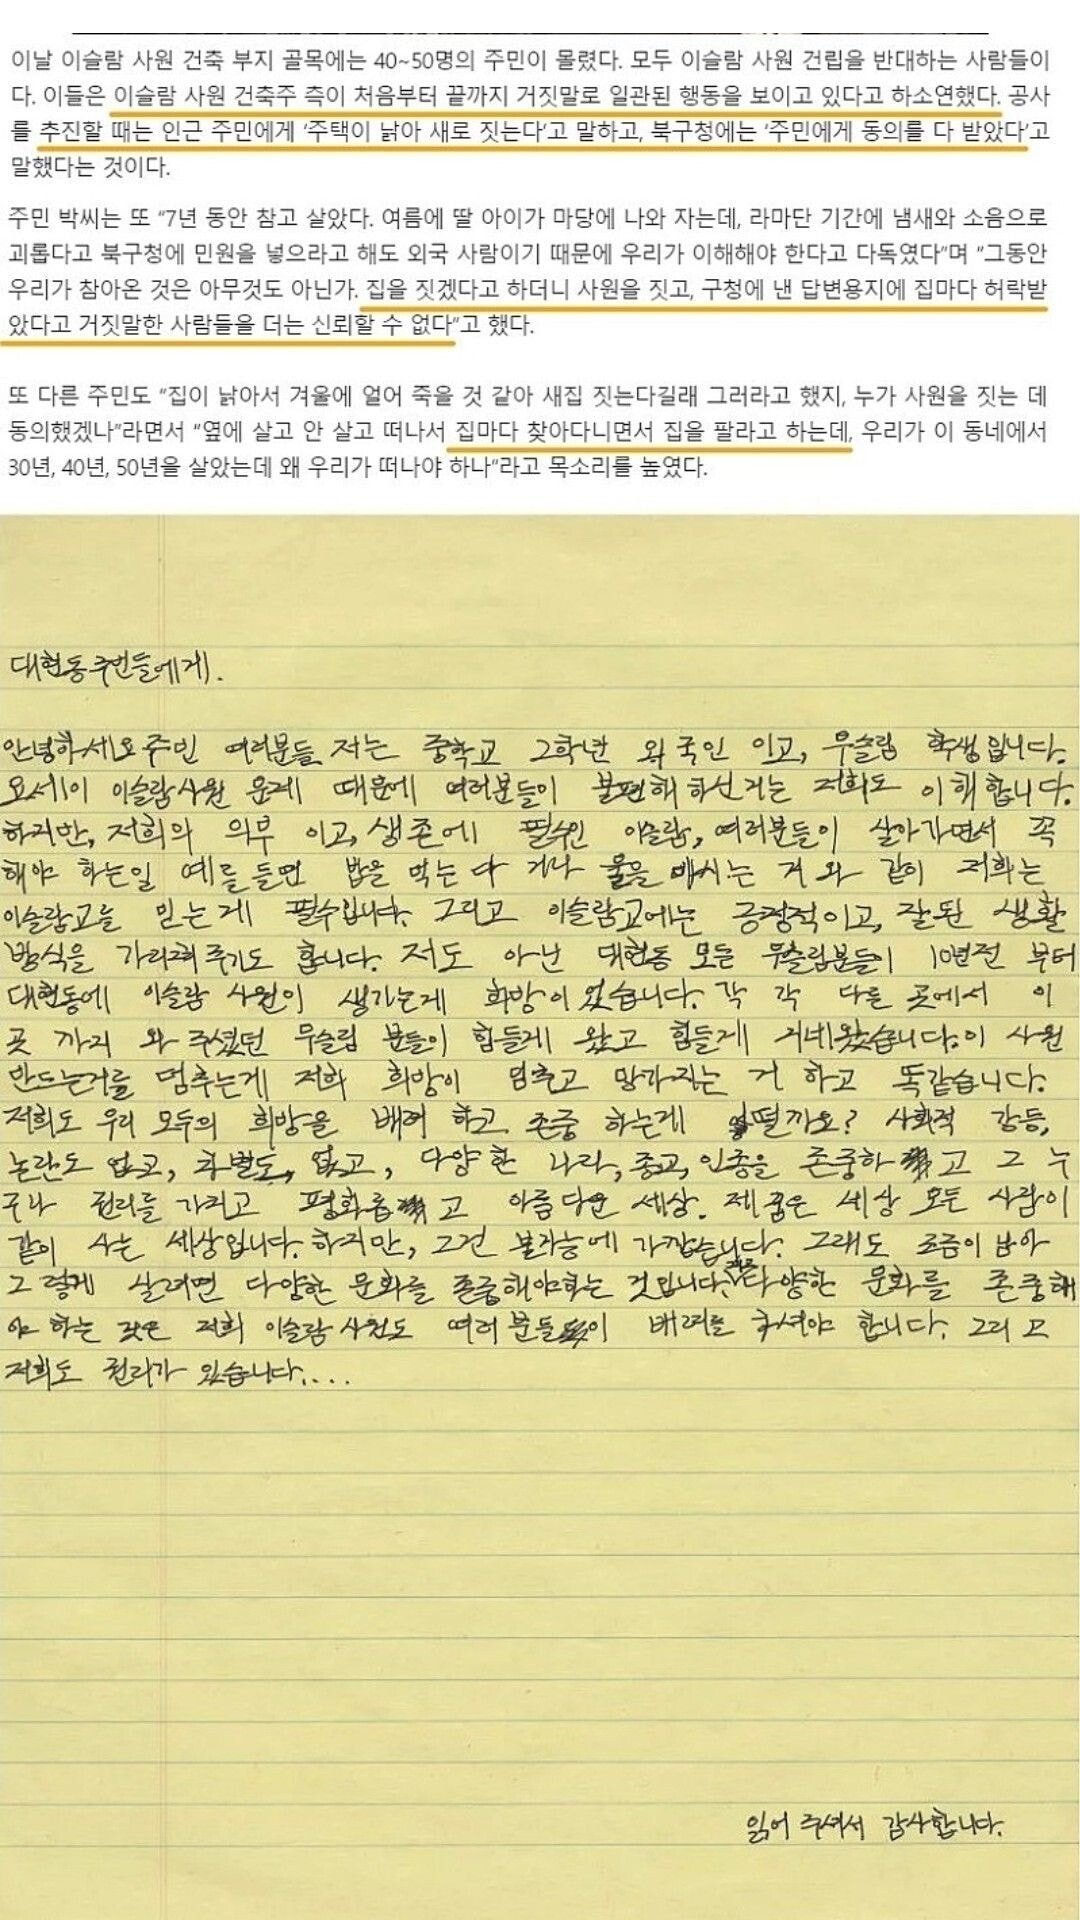 이날 이슬람 사원 건축 부지 골목에는 40~50명의 주민이 몰렸다. 모두 이슬람 사원 건립을 반대하는 사람들이
다. 이들은 이슬람 사원 건축주 측이 처음부터 끝까지 거짓말로 일관된 행동을 보이고 있다고 하소연했다. 공사
를 추진할 때는 인근 주민에게 '주택이 낡아 새로 짓는다'고 말하고, 북구청에는 '주민에게 동의를 다 받았다'고
말했다는 것이다.
주민 박씨는 또 "7년 동안 참고 살았다. 여름에 딸 아이가 마당에 나와 자는데, 라마단 기간에 냄새와 소음으로
괴롭다고 북구청에 민원을 넣으라고 해도 외국 사람이기 때문에 우리가 이해해야 한다고 다독였다"며 "그동안
우리가 참아온 것은 아무것도 아닌가. 집을 짓겠다고 하더니 사원을 짓고, 구청에 낸 답변용지에 집마다 허락받
았다고 거짓말한 사람들을 더는 신뢰할 수 없다"고 했다.
또 다른 주민도 "집이 낡아서 겨울에 얼어 죽을 것 같아 새집 짓는다길래 그러라고 했지, 누가 사원을 짓는 데
동의했겠나"라면서 "옆에 살고 안 살고 떠나서 집마다 찾아다니면서 집을 팔라고 하는데, 우리가 이 동네에서
30년, 40년, 50년을 살았는데 왜 우리가 떠나야 하나"라고 목소리를 높였다.
대현동주민들에게.
안녕하세요 주민 여러분들 저는 중학교 2학년 외국인 이고, 무슬림 학생입니다.
요세이 이슬람사원 문제 때문에 여러분들이 불편해 하신거는 저희도 이해합니다.
하지만, 저희의 의무 이고, 생존에 필수인 이슬람, 여러분들이 살아가면서 꼭
해야 하는일 예를들면 밥을 먹는다 거나 물을 마시는 거 와 같이 저희는
이슬람교를 믿는게 필수입니다. 그리고 이슬람교에는 긍정적이고, 잘된 생활
방식을 가리켜주기도 합니다. 저도 아닌 대현동 모든 무슬림분들이 10년전 부터
대현동에 이슬람 사원이 생기는게 희망이었습니다. 각 각 다른 곳에서 이
곳 까지 와 주셨던 무슬림 분들이 힘들게 왔고 힘들게 지네왔습니다. 이 사원
만드는거를 멈추는게 저희 희망이 멈추고 망가지는 거 하고 똑같습니다.
저희도 우리 모두의 희망을 배려 하고 존중 하는게 어떨까요? 사회적 갈등,
논란도 없고, 차별도, 없고, 다양한 나라, 종교, 인종을 존중하고 그 누
구나 권리를 가지고 평화롭고 아름다운 세상. 제 꿈은 세상 모든 사람이
같이 사는 세상입니다. 하지만, 그건 불가능에 가깝습니다. 그래도 조금이 남아
그렇게 살려면 다양한 문화를 존중해야하는 것입니다. 다양한 문화를 존중해
야 하는 것은 저희 이슬람사원도 여러분들이 배려를 주셔야 합니다. 그리고
저희도 권리가 있습니다....
읽어 주셔서 감사합니다.